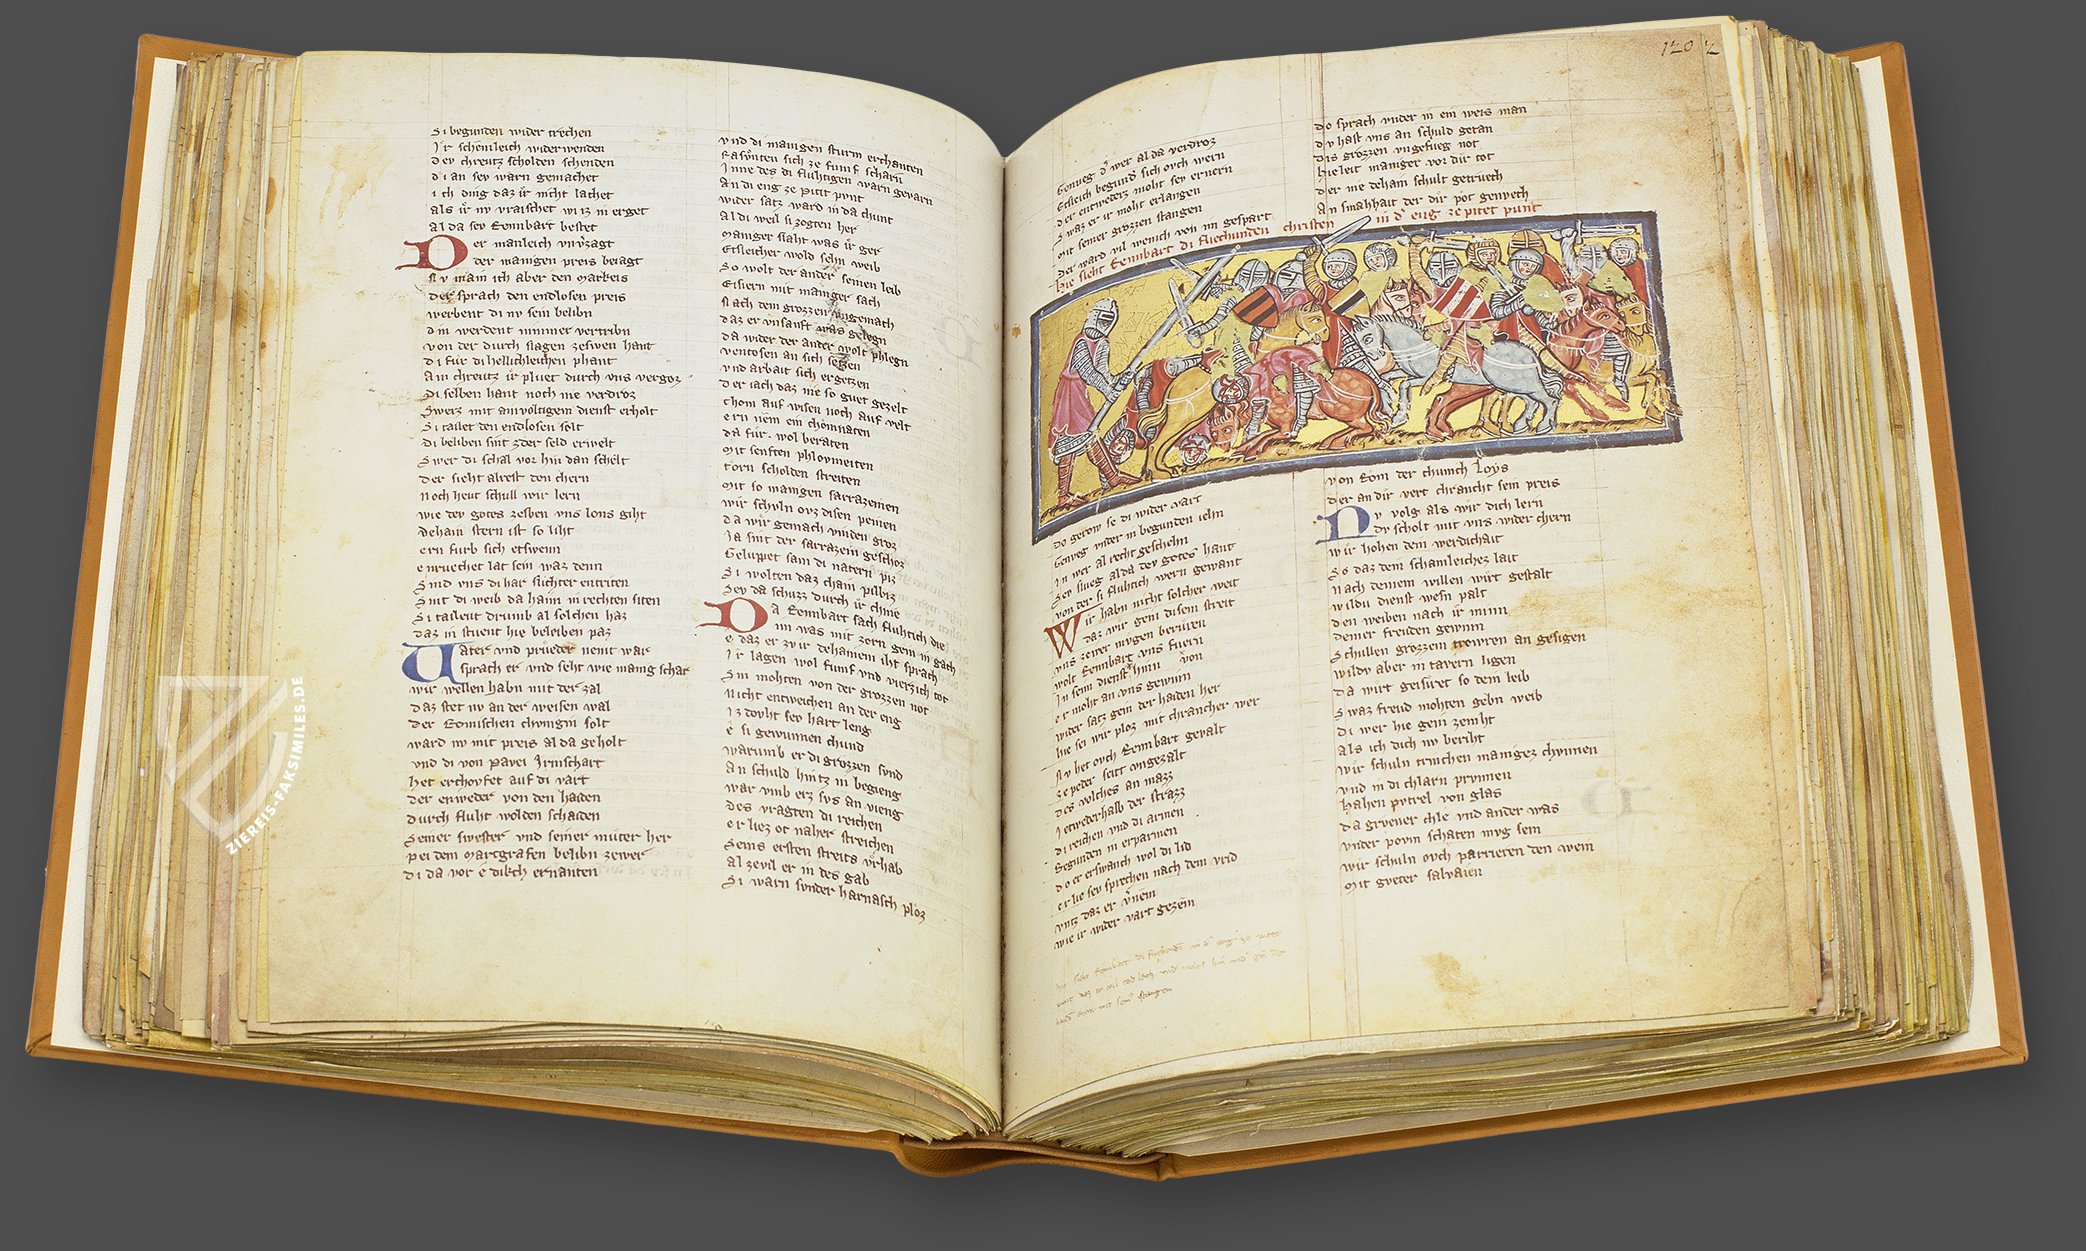 Si begunden wider trechen
Ir schemleich widerwenden
Dev chreutz scholden schenden
di an sey warn gemachet
ich ding daz ir nicht lachet
als ir nv vraischet wi iz in erget
Al da sey Rennbart bestet
Der manleich vnverzagt
der manigen preis beiagt
Nv main ich aber den Markeis
der sprach den endlosen preis
werbent di nv sein belibn
din werdent nimmer vertribn
von der durch slagen zeswen hant
di für di hellichleichen phant
Am chreutz ir pluet durch vns vergoz
Di selben hant noch nie verdroz
Swerz mit ainvoltigem dienst erholt
Si tailet den endlosen solt
di beliben sint zder seld erwelt
Swer di schal vor hin dan schelt
der sieht alrest den chern
Noch heut schull wir lern
wie dev gotes zeswen vns lons giht
dehain stern ist so liht
ern furb sich etswenn
enruechet lat sein waz denn
Sind vns di har slichter entriten
Sint di weib da haim in rechten siten
Si tailent drumb al solchen haz
daz in stuent hie beleiben paz
Vater vnd prüeder nemt war
sprach er vnd seht wie manig schar
wir wellen habn mit der zal
daz stet nv an der weisen wal
der Romischen chvngin solt
ward nv mit preis al da geholt
vnd di von Pavei Irmschart
het erchovfet auf di vart
der enweder von den haiden
durch fluht wolden schaiden
Seiner swester vnd seiner müter her
pei dem Marcgrafen belibn zewer
di da vor é dikch ernanten
vnd di manigen sturm erchanten
Rasünten sich ze fumf scharn
Inne des di fluhtigen warn gevarn
An di eng ze Pitit pvnt
wider satz ward in da chunt
Al di weil si zogten her
Maniger siaht was ir ger
Etsleicher wold sehn weib
So wolt der ander seinen leib
Eisiern mit maniger sach
Nach dem grozzen vngemach
daz er vnsanft was gelegn
da wider der ander wolt phlegn
ventosen an sich setzen
vnd arbait sich ergetzen
der iach daz nie so guet gezelt
chom auf wisen noch auf velt
ern nem ein chömnaten
da für. wol beraten
Mit senften phlovmeiten
torn scholden streiten
Mit so manigen sarrazeinen
wir schuln ovz disen peinen
da wir gemach vinden groz
Ia sint der sarrazein geschoz
Gelupet sam di natern piz
Si wolten daz chain pilbiz
Sey da schuzz durch ir chnie
Da Rennbart sach fluhtich die
im was mit zorn gein in gach
e daz er zvir dehainem iht sprach
Ir lagen wol fumf vnd vierzich tot
Sin mohten von der grozzen not
Nicht entweichen an der eng
Iz dovht sey hart leng
ê si gewunnen chund
warumb er di grozzen svnd
An schuld hintz in begieng
war vmb erz svs an vieng
des vragten di reichen
er liez ot naher streichen
Seins ersten streits vrhab
al zevil er in des gab
Si warn svnder harnasch ploz
120 2
Genueg der wer al da verdroz
Etsleich begund sich ovch wern
der entwederz moht sey ernern
Swaz er ir moht erlangen
mit seiner grozzen stangen
der ward vil wenich von im gespart
hie sieht Rennbart di fliechunden christen in der eng ze pitet punt
do gerow se di wider vart
Genveg vnder in begunden iehn
In wer al recht geschehn
Sey slueg alda dev gotes hant
von der si fluhtich wern gewant
Wir habn nicht solcher weit
daz wir gein disem streit
vns zewer mvgen berüren
wolt Rennbart vns fuern
In seim dienst hinn von
er moht an vns gewinn
wider satz gein der haiden her
hie sei wir ploz mit chrancher wer
Nv het ovch Rennbart gevalt
ze peder seitt vngezalt
des volches an mazz
Ietwederhalb der strazz
di reichen vnd di armen
Begunden in erparmen
do er erswanch wol di lid
er lie sey sprechen nach dem vrid
vntz daz er vernem
wie ir wider vart gezem
do sprach vnder in ein weis man
dv hast vns an schuld getan
dis grozzen vngefueg not
hie leit maniger vor dir tot
der nie dehain schult getruech
An smahhait der dir pot genvech
von Rom der chunich Loys
der an dir vert chrancht sein preis
Nv volg als wir dich lern
dv scholt mit vns wider chern
wir hohen dem werdichait
So daz dem schamleichez lait
Nach deinem willen wirt gestalt
wildu dienst wesn palt
den weiben nach ir minn
deiner freuden gewinn
Schullen grozzem trowren an gesigen
wildv aber in tavern ligen
da wirt geisüret so dem leib
Swaz freud mohten gebn weib
di wer hie gein zeniht
als ich dich nv beriht
wir schuln trinchen manigez chvnnen
vnd in di chlarn prvnnen
hahen pvtrel von glas
da gruener chle vnd ander was
vnder povm schaten mvg sein
wir schuln ovch parrieren den wein
Mit gveter salvaien
ZIEREIS-FAKSIMILES.DE